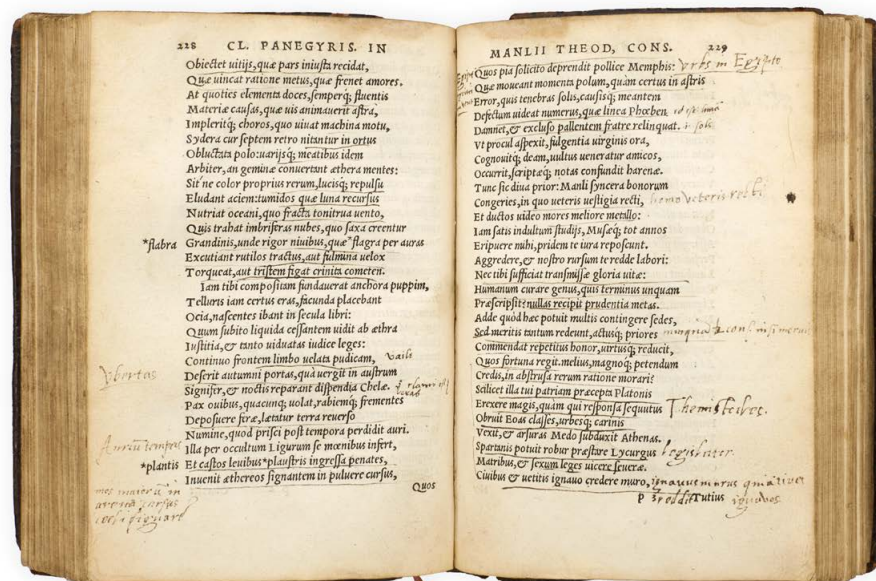 228 CL. PANEGYRIS. IN
Obiectet uitijs, quæ pars iniusta recidat,
Quæ uincat ratione metus, quæ frenet amores.
At quoties elementa doces, semperq; fluentis
Materiæ causas, quæ uis animauerit astra,
Impleritq; choros, quo uiuat machina motu,
Sydera cur septem retro nitantur in ortus
Obluctata polo: uarijsq; meatibus idem
Arbiter, an geminæ conuertant æthera mentes:
Sit ne color proprius rerum, lucisq; repulsu
Eludant aciem: tumidos quæ luna recursus
Nutriat oceani, quo fracta tonitrua uento,
Quis trahat imbriferas nubes, quo saxa creentur
*flabra Grandinis, unde rigor niuibus, quæ *flagra per auras
Excutiant rutilos tractus, aut fulmina uelox
Torqueat, aut tristem figat crinita cometen.
Iam tibi compositam fundauerat anchora puppim,
Telluris iam certus eras, facunda placebant
Ocia, nascentes ibant in secula libri:
Quum subito liquida cessantem uidit ab æthra
Iustitia, & tanto uiduatas iudice leges:
Continuo frontem limbo uelata pudicam,
Deserit autumni portas, quà uergit in austrum
Vbertas
Signifer, & noctis reparant dispendia Chelæ.
Pax ouibus, quacunq; uolat, rabiemq; frementes
Deposuere feræ, lætatur terra reuerso
Numine, quod prisci post tempora perdidit auri.
Illa per occultum Ligurum se mœnibus infert,
*plantis Et castos leuibus *plaustris ingressa penates,
Inuenit æthereos signantem in puluere cursus,
Quos
MANLII THEOD, CONS. 229
Quos pia solicito deprendit pollice Memphis: Vrbs in Egypto
Quæ moueant momenta polum, quàm certus in astris
Error, quis tenebras solis, causisq; meantem
Defectum uideat numerus, quæ linea Phœben
Damnet, & excluso pallentem fratre relinquat.
Vt procul aspexit, fulgentia uirginis ora,
Cognouitq; deam, uultus ueneratur amicos,
Occurrit, scriptæq; notas confundit harenæ.
Tunc sic diua prior: Manli syncera bonorum
Congeries, in quo ueteris uestigia recti,
Et ductos uideo mores meliore metallo:
Iam satis indultum studijs, Musæq; tot annos
Eripuere mihi, pridem te iura reposcunt.
Aggredere, & nostro rursum te redde labori:
Nec tibi sufficiat transmissæ gloria uitæ:
Humanum curare genus, quis terminus unquam
Præscripsit? nullas recipit prudentia metas.
Adde quòd hæc potuit multis contingere sedes,
Sed meritis tantum redeunt, actusq; priores
Commendat repetitus honor, uirtusq; reducit,
Quos fortuna regit. melius, magnoq; petendum
Credis, in abstrusa rerum ratione morari?
Scilicet illa tui patriam præcepta Platonis
Erexere magis, quàm qui responsa sequutus Themistocles.
Obruit Eoas classes, urbesq; carinis
Vexit, & arsuras Medo subduxit Athenas.
Spartanis potuit robur præstare Lycurgus legislator.
Matribus, & sexum leges uicere seueræ.
Ciuibus & uetitis ignauo credere muro,
P 3 Tutius